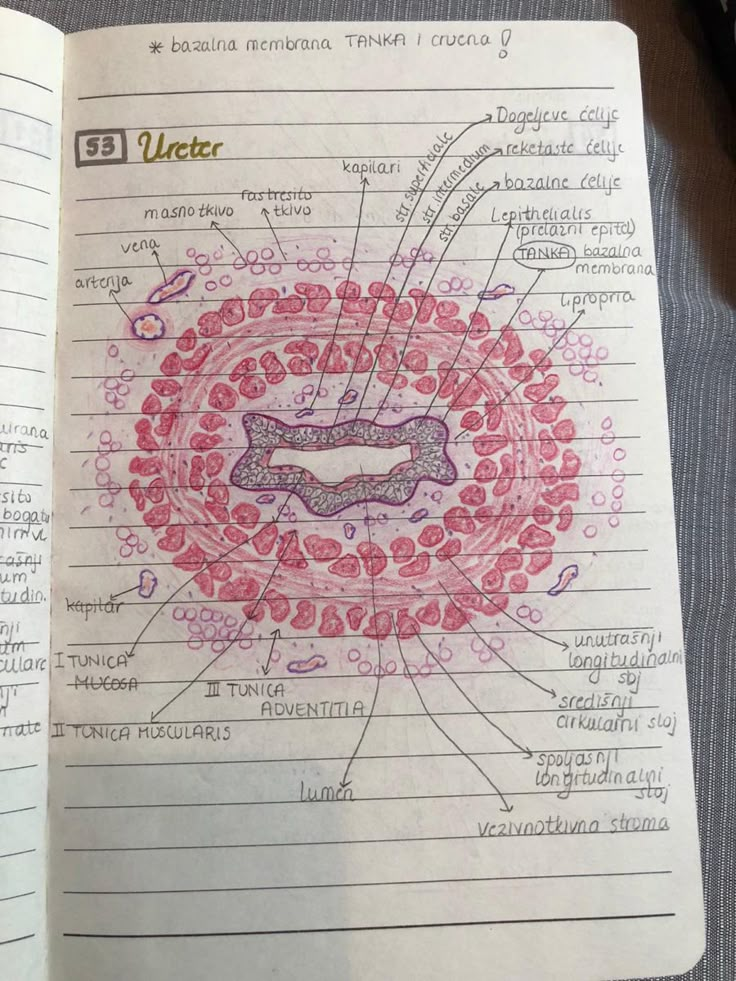 * bazalna membrana TANKA i crvena !
53 Ureter
kapilari
rastresito
tkivo
masno tkivo
vena
arterija
str. superficiale
Dogeljeve ćelije
str. intermedium
reketaste ćelije
str. basale
bazalne ćelije
L.epithelialis
(prelazni epitel)
TANKA bazalna
membrana
l.propria
kapilar
I TUNICA
MUCOSA
III TUNICA
ADVENTITIA
II TUNICA MUSCULARIS
lumen
unutrašnji
longitudinalni
sloj
središnji
cirkularni sloj
spoljašnji
longitudinalni
sloj
vezivnotkivna stroma
sito
bogati
um